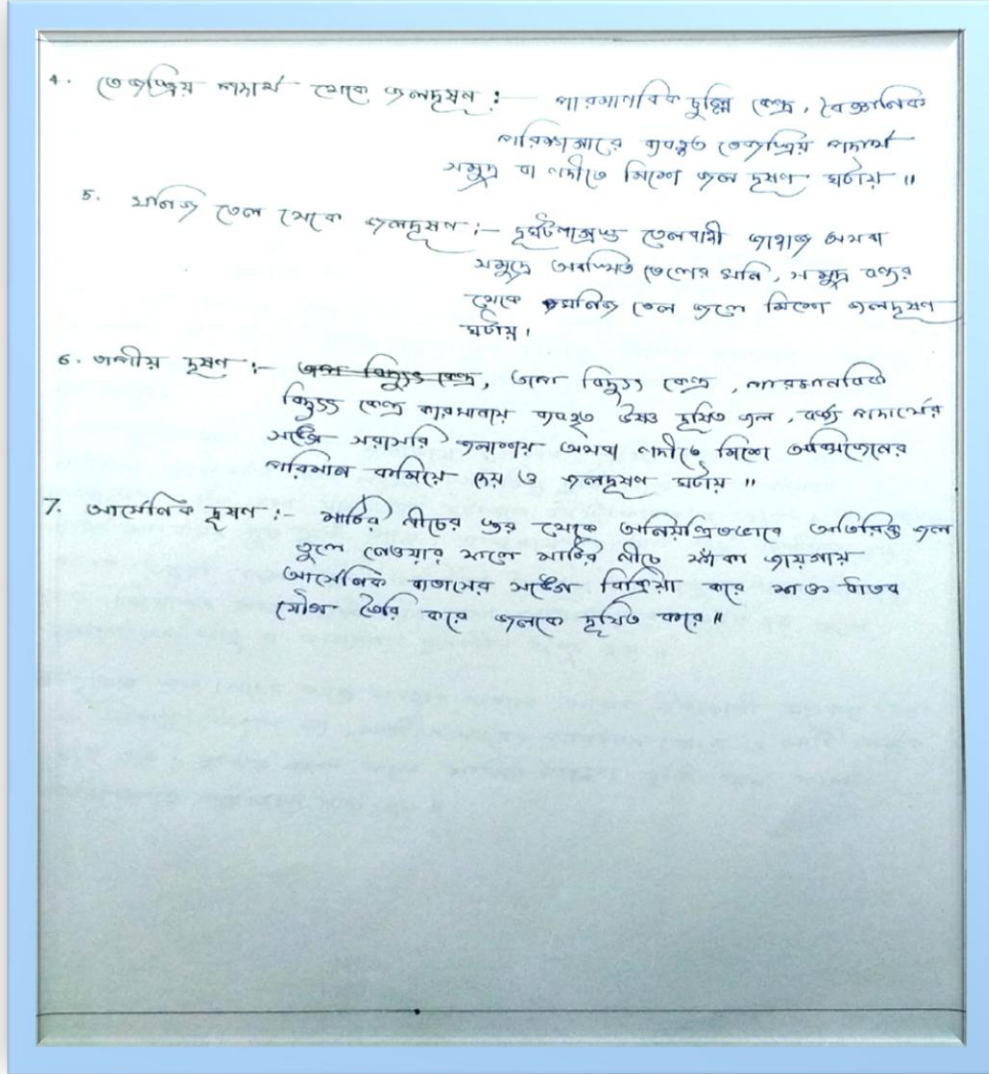 4. তেজস্ক্রিয় পদার্থ থেকে জলদূষণ :— পারমাণবিক চুল্লি কেন্দ্র, বৈজ্ঞানিক
পরিক্ষাগারে ব্যবহৃত তেজস্ক্রিয় পদার্থ
সমুদ্র বা নদীতে মিশে জল দূষণ ঘটায় ॥
5. খনিজ তেল থেকে জলদূষণ :— দূর্ঘটনাগ্রস্ত তেলবাহী জাহাজ অথবা
সমুদ্রে অবস্থিত তেলের খনি, সমুদ্র বন্দর
থেকে খনিজ তেল জলে মিশে জলদূষণ
ঘটায়।
6. তাপীয় দূষণ :— তাপ বিদ্যুৎ কেন্দ্র, তাপ বিদ্যুৎ কেন্দ্র, পারমানবিক
বিদ্যুৎ কেন্দ্র কারখানায় ব্যবহৃত উষ্ণ দূষিত জল, বর্জ্য পদার্থের
সঙ্গে সরাসরি জলাশয় অথবা নদীতে মিশে অক্সিজেনের
পরিমান কমিয়ে দেয় ও জলদূষণ ঘটায় ॥
7. আর্সেনিক দূষণ :— মাটির নীচের স্তর থেকে অনিয়ন্ত্রিতভাবে অতিরিক্ত জল
তুলে নেওয়ার ফলে মাটির নীচে ফাঁকা জায়গায়
আর্সেনিক বাতাসের সঙ্গে বিক্রিয়া করে ধাতব
যৌগ তৈরি করে জলকে দূষিত করে॥